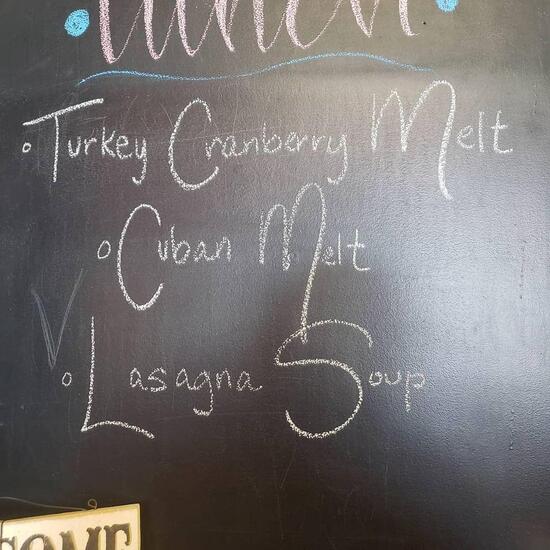 lunch
Turkey Cranberry Melt
Cuban Melt
Lasagna Soup
COME